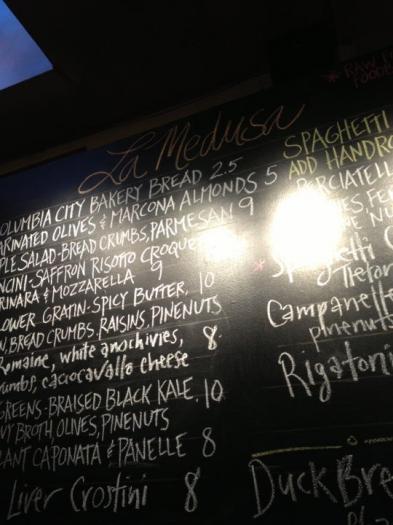 La Medusa
OLUMBIA CITY BAKERY BREAD 2.5
ARINATED OLIVES & MARCONA ALMONDS 5
PLE SALAD-BREAD CRUMBS, PARMESAN 9
NCINI-SAFFRON RISOTTO CROQUE
RINARA & MOZZARELLA 9
LOWER GRATIN-SPICY BUTTER, 10
BREAD CRUMBS, RAISINS, PINENUTS
Romaine, white anochivies, 8
rumbs, caciocavallo cheese
GREENS-BRAISED BLACK KALE, 10
VY BROTH, OLIVES, PINENUTS
LANT CAPONATA & PANELLE 8
Liver Crostini 8
* RAW
FOOD
SPAGHETTI
ADD HANDRO
CIATELL
* Spaghetti
Campanell
pinenuts
Rigatoni
Duck Bre